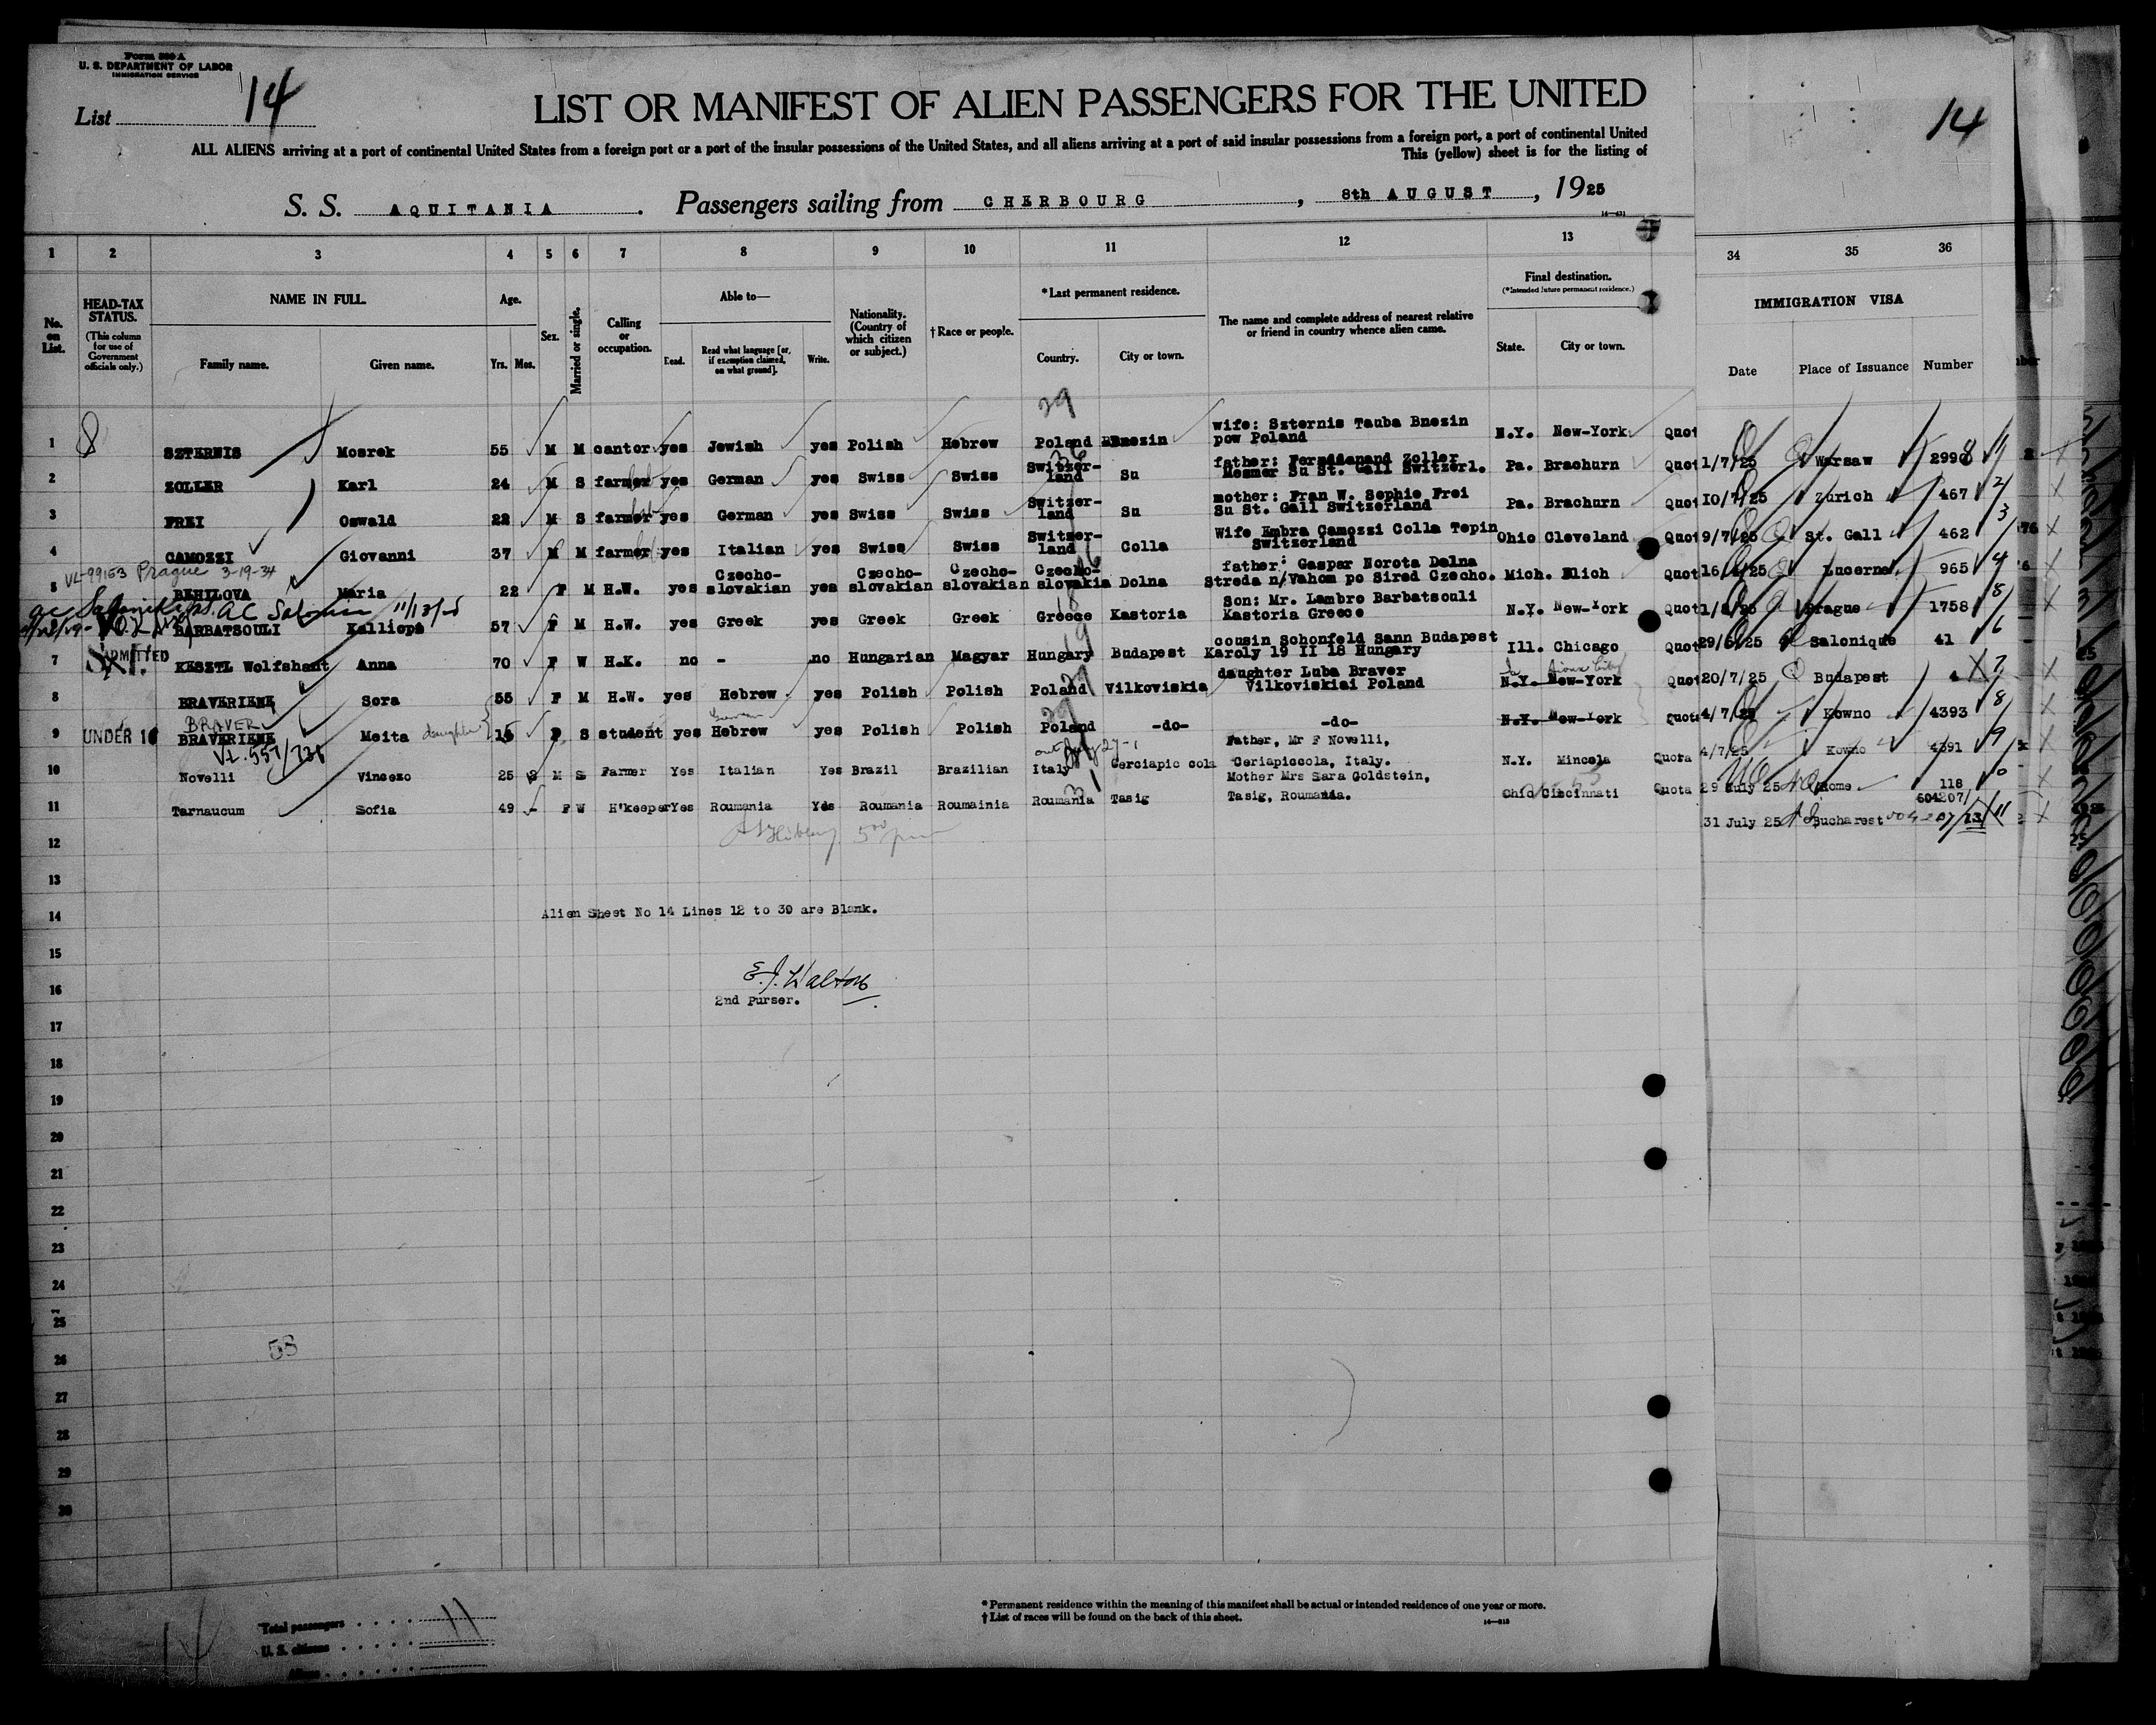 Form 500 A
U. S. DEPARTMENT OF LABOR
IMMIGRATION SERVICE
List 14
LIST OR MANIFEST OF ALIEN PASSENGERS FOR THE UNITED
14
ALL ALIENS arriving at a port of continental United States from a foreign port or a port of the insular possessions of the United States, and all aliens arriving at a port of said insular possessions from a foreign port, a port of continental United
This (yellow) sheet is for the listing of
S. S. AQUITANIA. Passengers sailing from CHERBOURG, 8th AUGUST, 1925
1 2 3 4 5 6 7 8 9 10 11 12 13 34 35 36
No. on List.
HEAD-TAX STATUS.
(This column for use of Government officials only.)
NAME IN FULL.
Family name. Given name.
Age.
Yrs. Mos.
Sex.
Married or single.
Calling or occupation.
Able to—
Read. Read what language [or, if exemption claimed, on what ground]. Write.
Nationality. (Country of which citizen or subject.)
†Race or people.
*Last permanent residence.
Country. City or town.
The name and complete address of nearest relative or friend in country whence alien came.
Final destination.
(*Intended future permanent residence.)
State. City or town.
IMMIGRATION VISA
Date Place of Issuance Number
29
1 SZTERNIS Mosrek 55 M M cantor yes Jewish yes Polish Hebrew Poland Bnezin wife: Szternis Tauba Bnezin pow Poland N.Y. New-York Quot 1/7/25 Warsaw 2998 1
2 ZOLLER Karl 24 M S farmer yes German yes Swiss Swiss Switzer-land Su father: Ferndinand Zoller Mesmer Su St. Gall Switzerl. Pa. Brachurn Quot 10/7/25 Zurich 467 2
3 FREI Oswald 22 M S farmer yes German yes Swiss Swiss Switzer-land Su mother: Fran W. Sophie Frei Su St. Gall Switzerland Pa. Brachurn Quot 9/7/25 St. Gall 462 3
4 CAMOZZI Giovanni 37 M M farmer yes Italian yes Swiss Swiss Switzer-land Colla Wife Embra Camozzi Colla Tepin Switzerland Ohio Cleveland Quot 16/ /25 Lucerne 965 4
VL-99163 Prague 3-19-34
5 BEHILOVA Maria 22 F M H.W. yes Czecho-slovakian yes Czecho-slovakian Czecho-slovakian Czecho-slovakia Dolna father: Gaspar Norota Dolna Streda n/Vahom po Sired Czecho. Mich. Elich Quot 1/ /25 Prague 1758
11/13/25
BARBATSOULI Kalliope 57 F M H.W. yes Greek yes Greek Greek Greece Kastoria Son: Mr. Lambro Barbatsouli Kastoria Greece N.Y. New-York Quot 29/6/25 Salonique 41 6
ADMITTED
7 KESZTL Wolfshaut Anna 70 F W H.K. no - no Hungarian Magyar Hungary Budapest cousin Schonfeld Sann Budapest Karoly 19 II 18 Hungary Ill. Chicago Quot 20/7/25 Budapest 4 7
8 BRAVERIENE Sora 55 F M H.W. yes Hebrew yes Polish Polish Poland Vilkoviskia daughter Luba Braver Vilkoviskiai Poland N.Y. New-York Sioux City Quota 4/7/25 Kowno 4393 8
BRAVER
9 UNDER 16 BRAVERIENE Meita daughter 15 F S student yes Hebrew German yes Polish Polish Poland -do- -do- N.Y. New-York 4/7/25 Kowno 4391 9
VL. 557/738
10 Novelli Vincezo 25 M S Farmer Yes Italian Yes Brazil Brazilian Italy Cerciapic cola Father, Mr F Novelli, Ceriapiccola, Italy. N.Y. Mineola Quota 29 July 25 Rome 118
11 Tarnaucum Sofia 49 F W H'keeper Yes Roumania Yes Roumania Roumainia Roumania Tasig Mother Mrs Sara Goldstein, Tasig, Roumania. Ohio Cincinnati Quota 31 July 25 Bucharest 504207/13 11
12
13
14 Alien Sheet No 14 Lines 12 to 30 are Blank.
15
16 E.J. Walton
2nd Purser.
17
18
19
20
21
22
23
24
25
26 58
27
28
29
30
*Permanent residence within the meaning of this manifest shall be actual or intended residence of one year or more.
†List of races will be found on the back of this sheet.
Total passengers . . . . 11
U. S. citizens . . . . .
Aliens . . . . . .
14